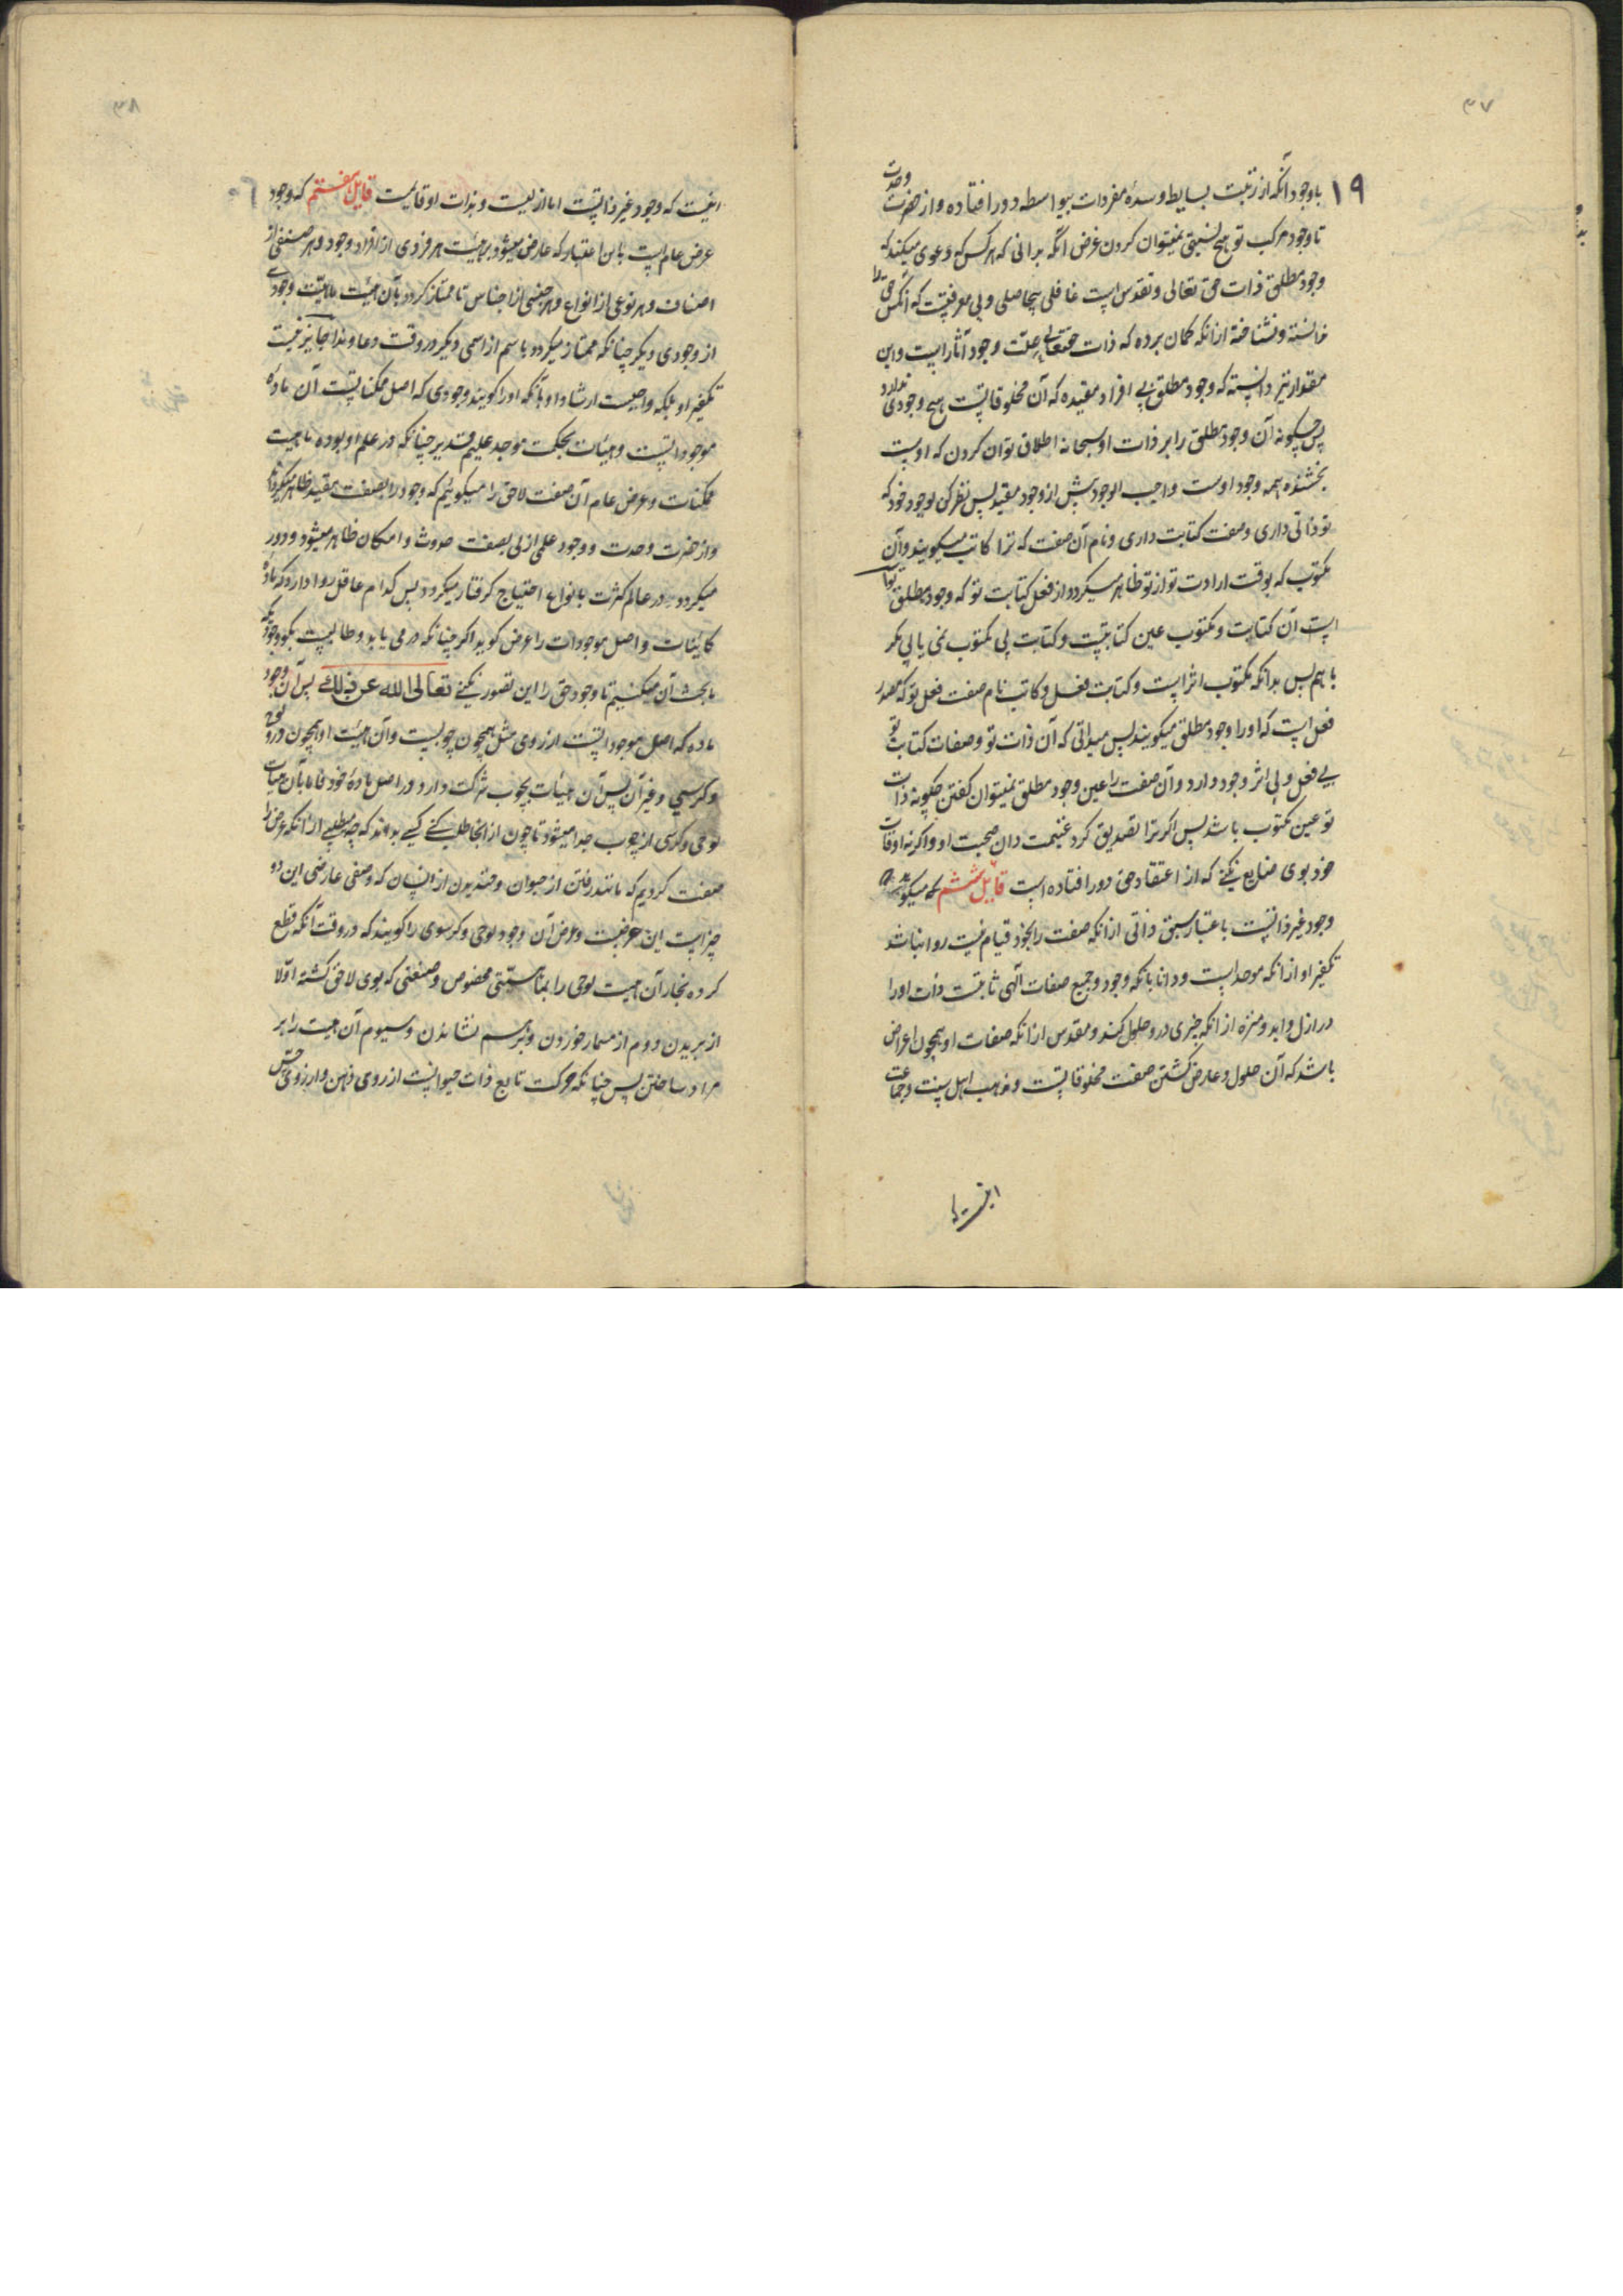 ۳۷
۱۹
باوجود آنکه از رتبت بسایط وسدۀ مفردات بیواسطه دور افتاده و از حضرت وحدت
تا وجود مرکب تو هیچ نسبتی نمیتوان کردن غرض آنکه بدانی که هر کس که دعوی میکند که
وجود مطلق ذات حق تعالی و تقدس است غافلی بیحاصلی و بی معرفتیست که آنکس حق را
ندانسته و نشناخته از آنکه گمان برده که ذات حقتعالی علت وجود آثار است و این
مقدار نیز دانسته که وجود مطلق بی افراد مقیده که آن مخلوقاتست هیچ وجودی ندارد
پس چگونه آن وجود مطلق را بر ذات او سبحانه اطلاق توان کردن که اوست
بخشنده همه وجود اوست واجب الوجود پیش از وجود مقید پس نظر کن بوجود خود که
تو ذاتی داری و صفت کتابت داری و نام آن صفت که ترا کاتب میگویند و آن
مکتوب که بوقت ارادت تو از تو ظاهر میگردد از فعل کتابت تو که وجود مطلق
است آن کتابت و مکتوب عین کتابتست و کتابت بی مکتوب نمی یابی مگر
با هم پس بدانکه مکتوب اثر است و کتابت فعل و کاتب نام صفت فعل تو که مصدر
فعل است که او را وجود مطلق میگویند پس میدانی که آن ذات تو و صفات کتابت تو
بی فعل و بی اثر وجود دارد و آن صفت را عین وجود مطلق نمیتوان گفتن چگونه ذات
تو عین مکتوب باشد پس اگر ترا تصدیق کرد غنیمت دان صحبت او و اگر نه اوقات
خود بوی ضایع نکنی که از اعتقاد حق دور افتاده است قایل ششم که میگوید
وجود غیر ذاتست باعتبار سبق ذاتی از آنکه صفت را بخود قیام نیست روا نباشد
تکفیر او از آنکه موحد است و دانا بانکه وجود و جمیع صفات الهی ثابتست ذات او را
در ازل و ابد و منزه از آنکه چیزی درو حلول کند و مقدس از آنکه صفات او همچون اعراض
باشد که آن حلول و عارض گشتن صفت مخلوقاتست و مذهب اهل سنت و جماعت
اینست که
۳۸
اینست که وجود غیر ذاتست اما ازلیست و بذات او قایمست قایل هفتم که وجود
عرض عام است باین اعتبار که عارض میشود بر هیئت هر فردی از افراد وجود و هر صنفی از
اصناف و هر نوعی از انواع و هر جنسی از اجناس تا ممتاز گردد بآن هیئت ماهیت وجودی
از وجودی دیگر چنانکه ممتاز میگردد باسم از اسمی دیگر در وقت دعا و ندا جایز نیست
تکفیر او بلکه واجبست ارشاد او بآنکه او را گویند وجودی که اصل ممکناتست آن ماده
موجوداتست و هیئات بحکمت موجد علیم قدیر چنانکه در علم او بوده ماهیت
ممکنات و عرض عام آن صفت لاحق را میگوئیم که وجود را بصفت مقید ظاهر میگرداند
و از حضرت وحدت و وجود علمی ازلی بصفت حدوث و امکان ظاهر میشود و دور
میگردد و در عالم کثرت بانواع احتیاج گرفتار میگردد پس کدام عاقل روا دارد که ماده
کاینات و اصل موجودات را عرض گوید اگر چنانکه در می یابد و طالبست بگو وجودیکه
ما بحث آن میکنیم تا وجود حق را این تصور نکنی تعالی الله عن ذلک پس آن وجود
ماده که اصل موجوداتست از روی مثل همچون چوبست و آن هیئت او همچون در و لوح
و کرسی و غیر آن پس آن هیئات بچوب شرکت دارد در اصل مادۀ خود فاما بآن هیئات
لوحی و کرسی از چوب جدا میشود تا چون از آنجا طلب کنی کسی بداند که چه مطلبی از آنکه عرض را
صفت کردیم که مانند رفتن از حیوان و خندیدن از انسان که وصفی عارضی این دو
چیز است این عرضیت و عرض آن وجود لوحی و کرسوی را گویند که در وقت آنکه قطع
کرده نجار آن هیئت لوحی را بمناسبتی مخصوص و صنعتی که بوی لاحق گشته اولا
از بریدن و دوم از مسمار خوردن و بر هم نشاندن و سیوم آن هیئت را بر
مراد ساختن پس چنانکه حرکت تابع ذات حیوانست از روی ذهن و از روی حس